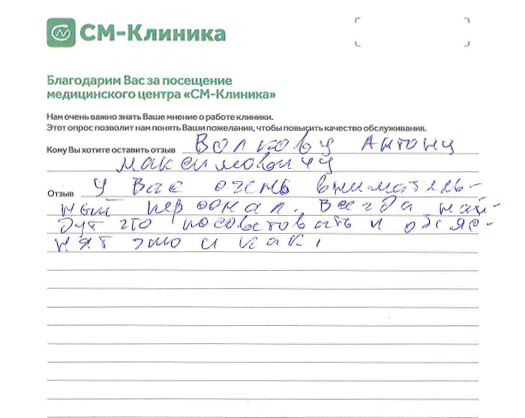 СМ-Клиника
Благодарим Вас за посещение
медицинского центра «СМ-Клиника»
Нам очень важно знать Ваше мнение о работе клиники.
Этот опрос позволит нам понять Ваши пожелания, чтобы повысить качество обслуживания.
Кому Вы хотите оставить отзыв Волкову Антону
Максимовичу
Отзыв У Вас очень вниматель-
ный персонал. Всегда най-
дут что посоветовать и объяс-
нят что и как,